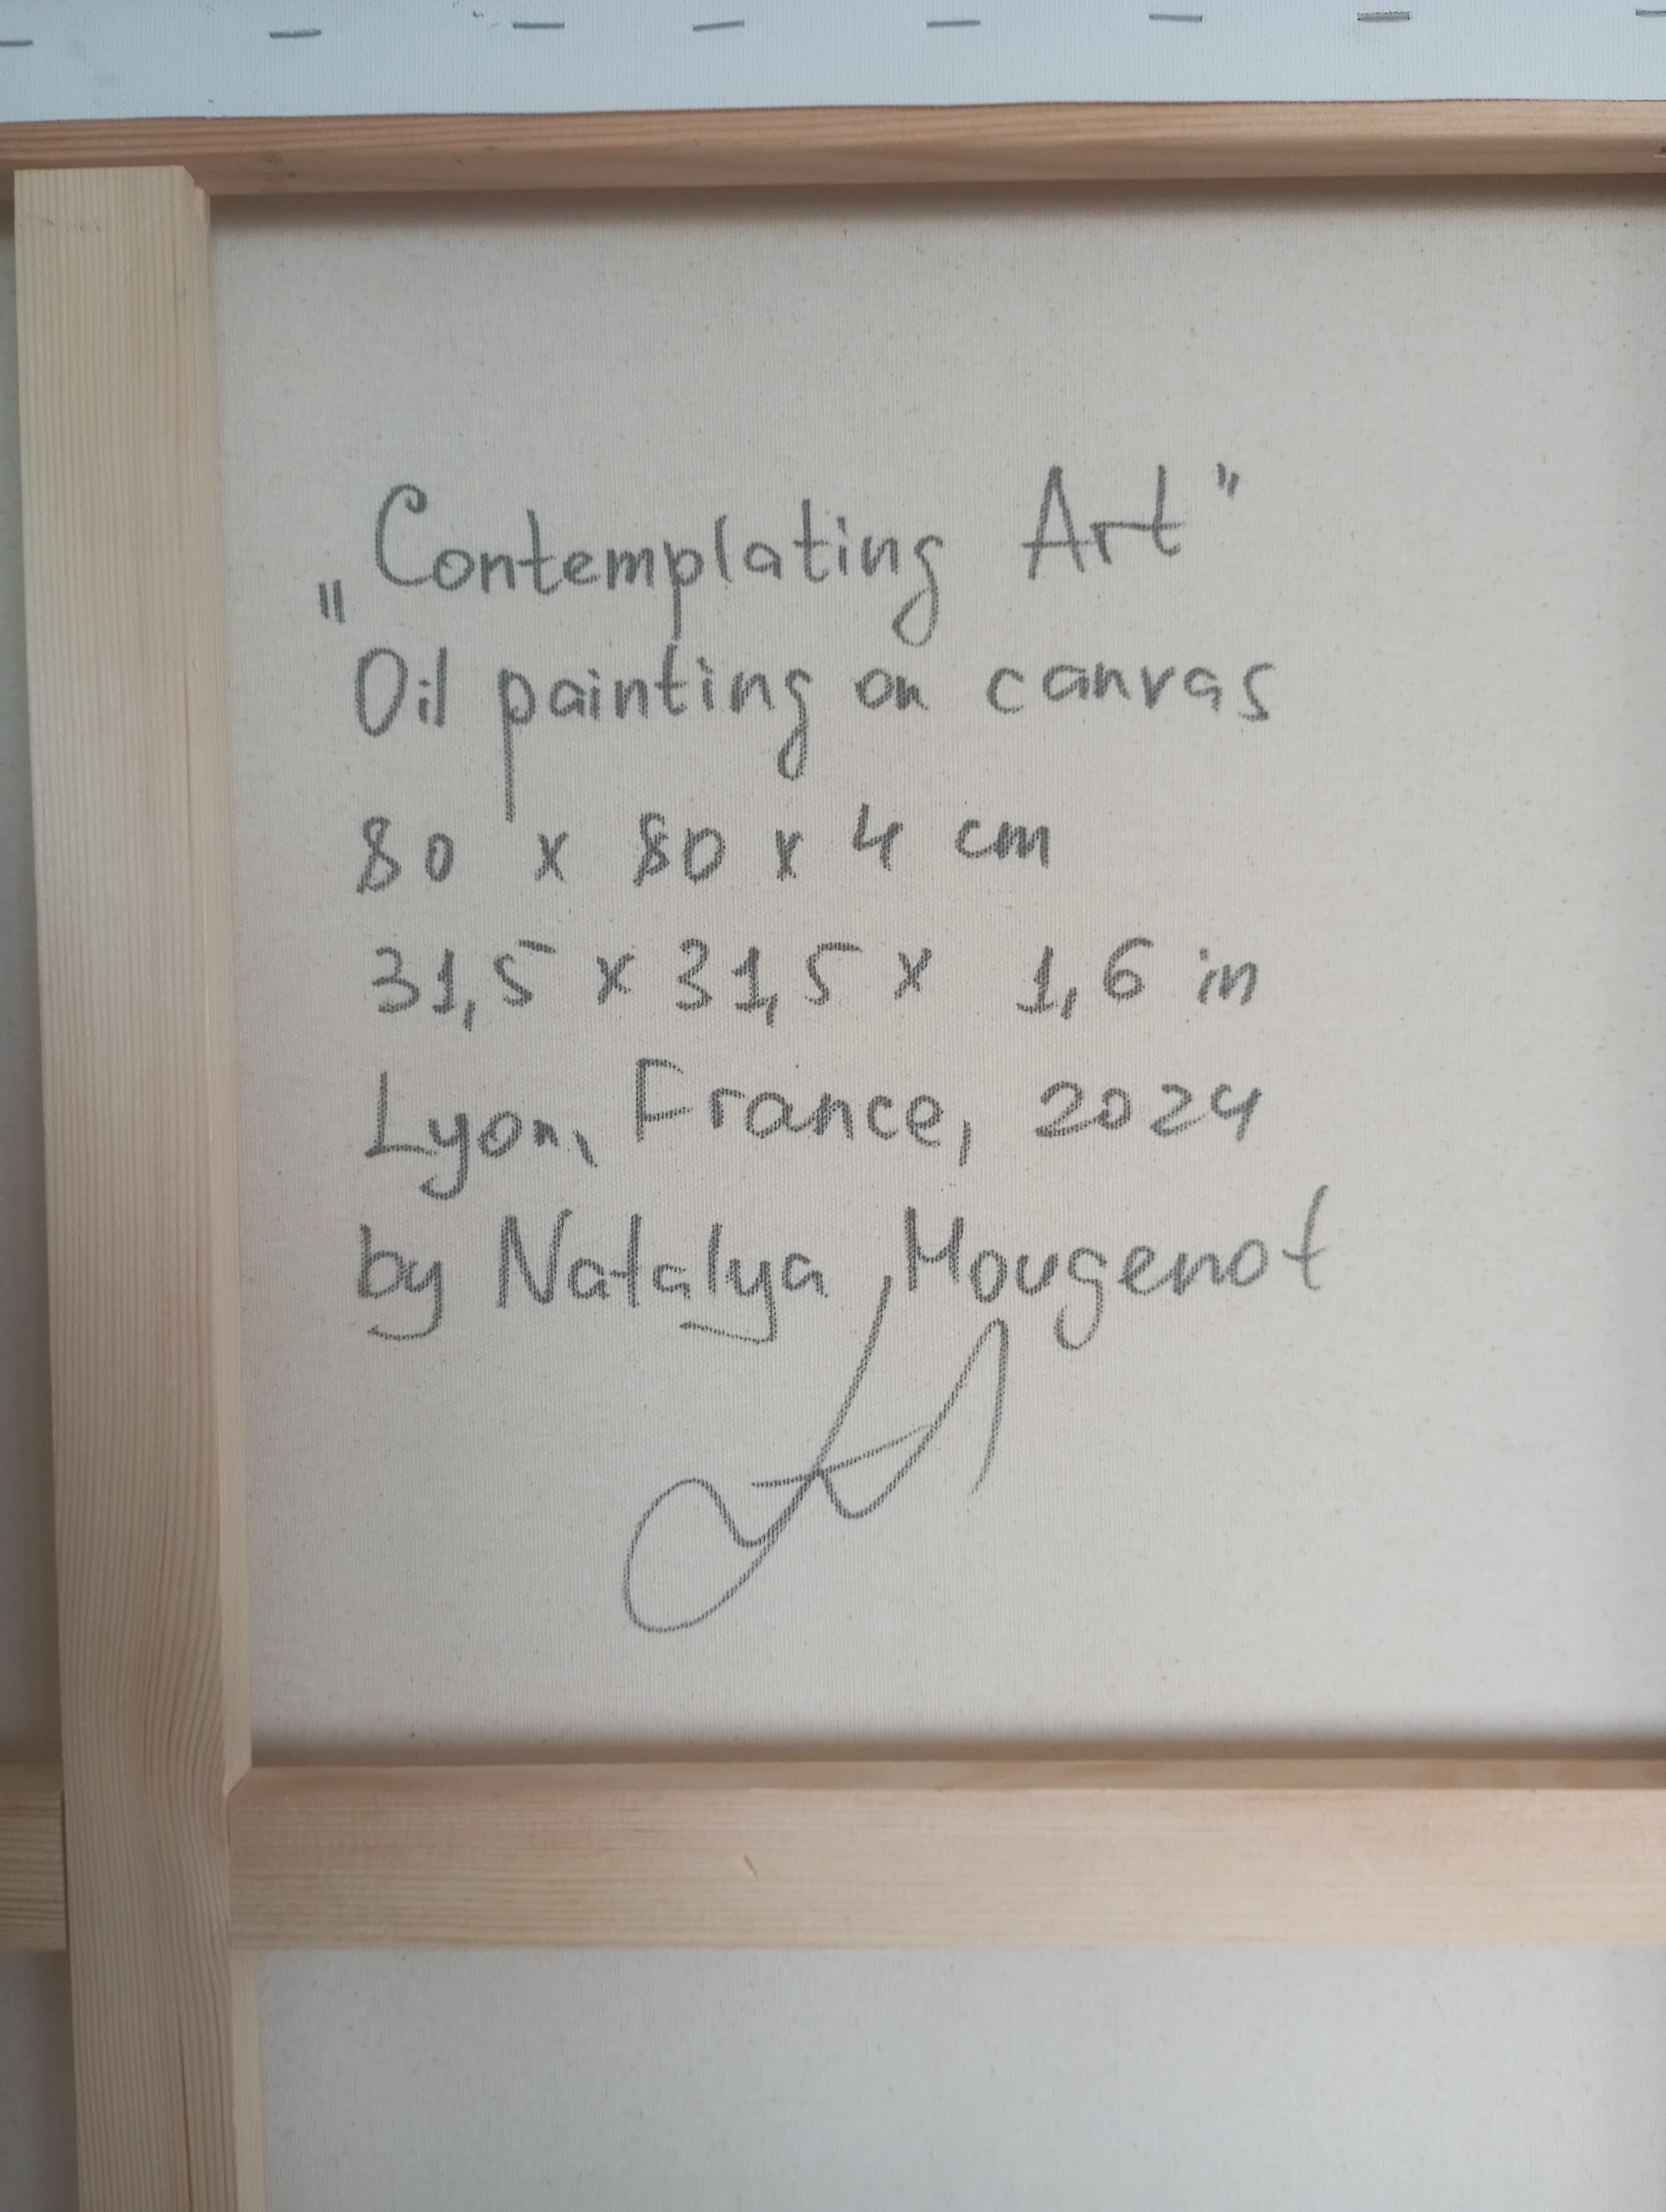 „Contemplating Art"
Oil painting on canvas
80 x 80 x 4 cm
31,5 x 31,5 x 1,6 in
Lyon, France, 2024
by Natalya Mougenot